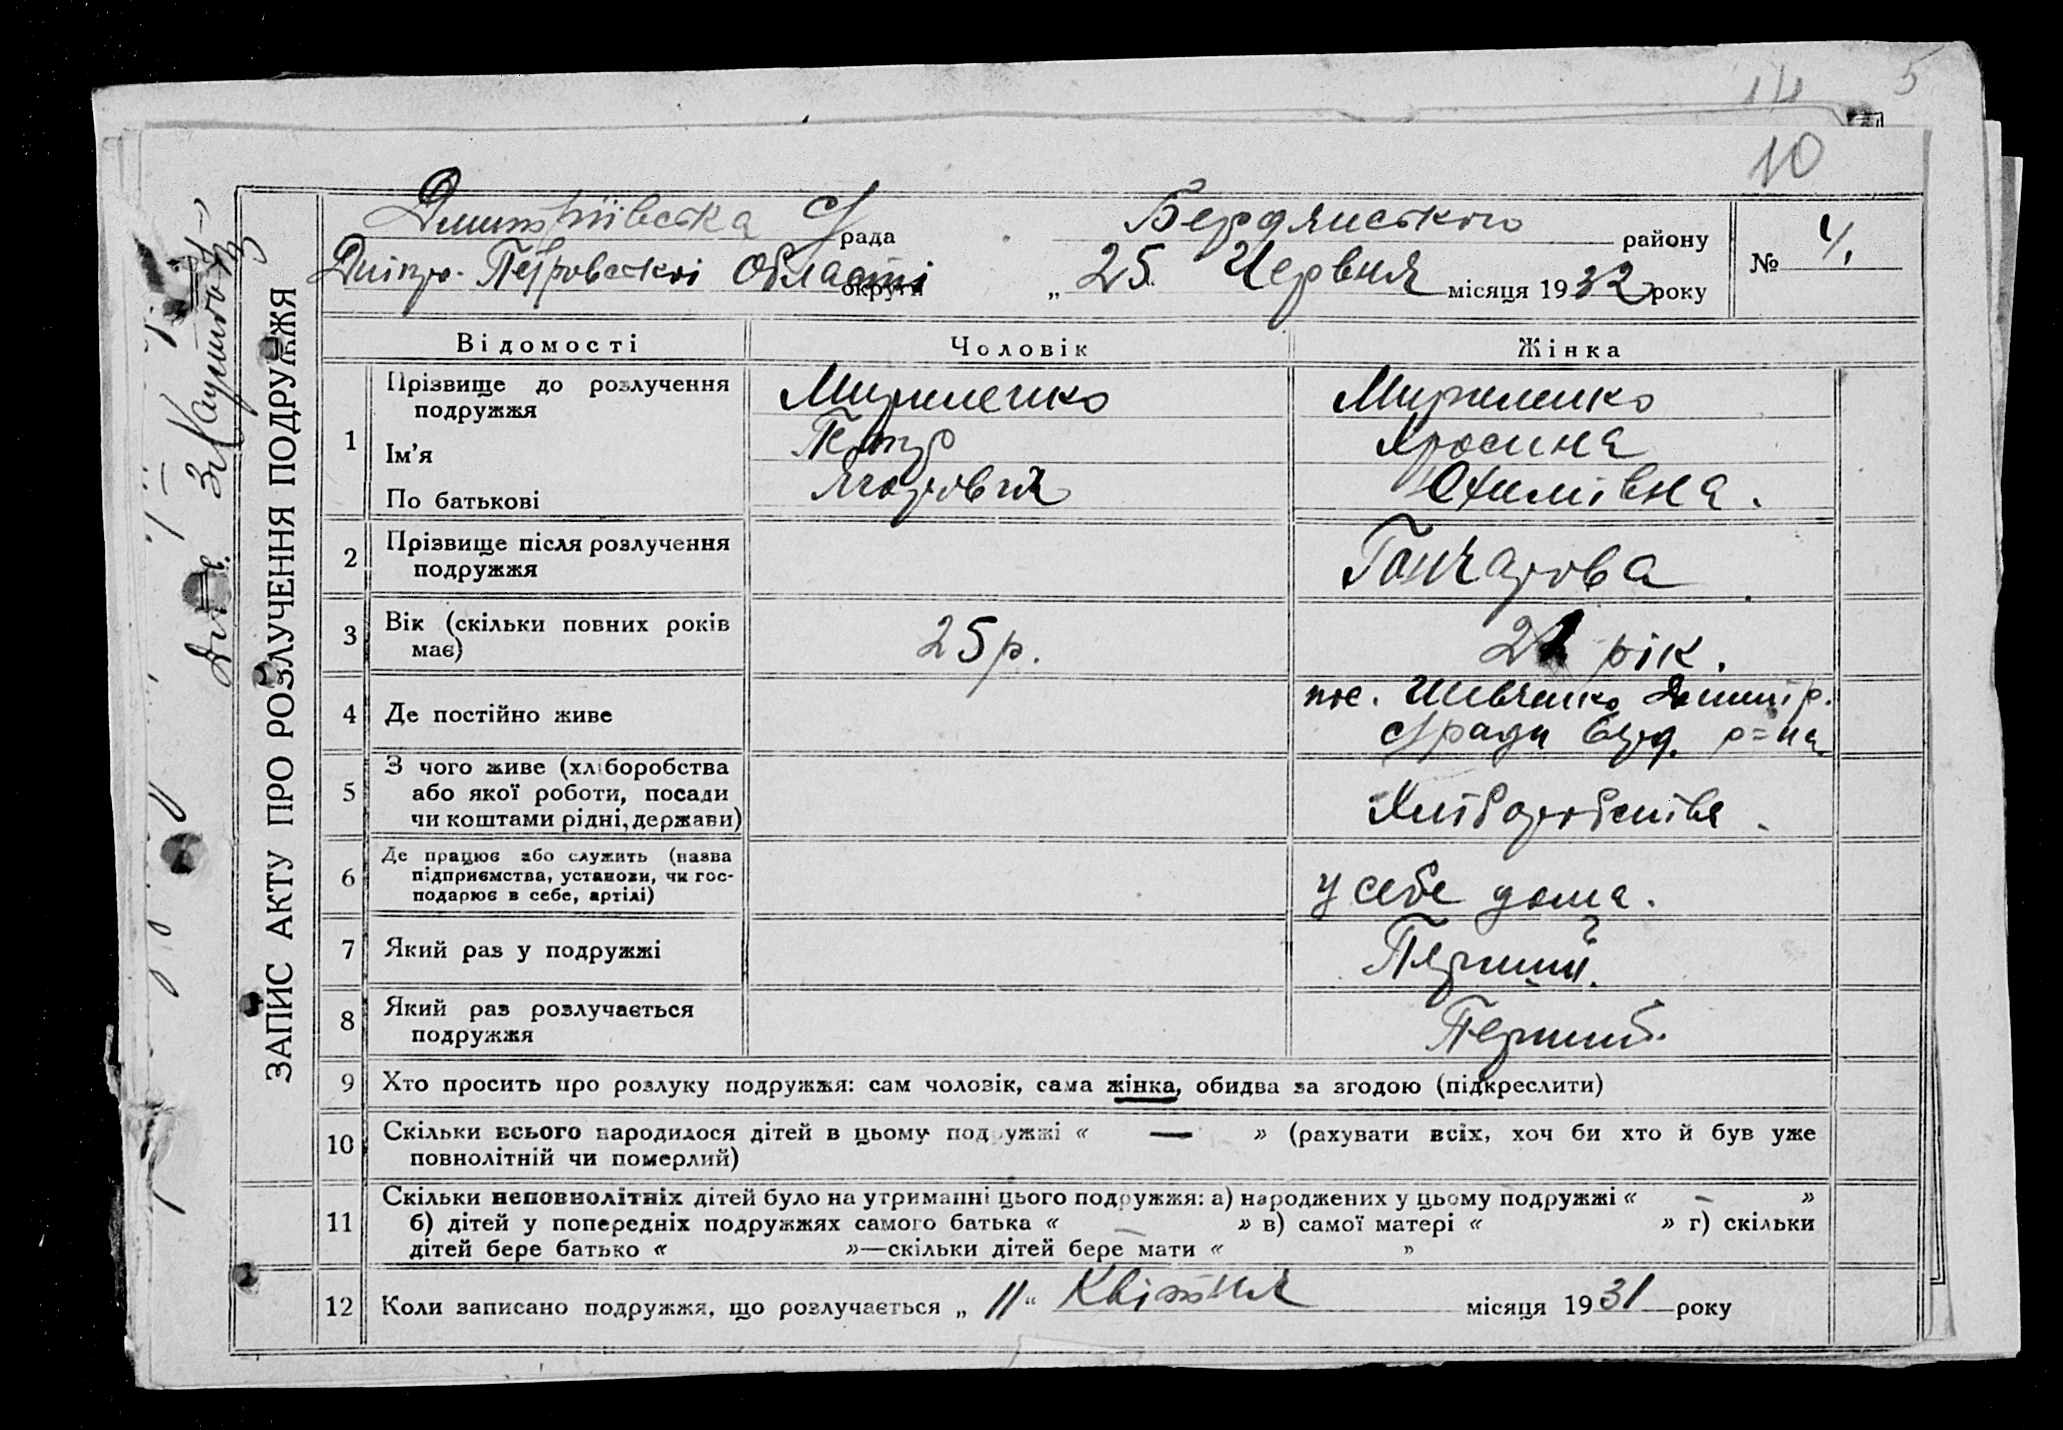 5
14
10
ЗАПИС АКТУ ПРО РОЗЛУЧЕННЯ ПОДРУЖЖЯ
Дмитріївська с/рада Бердянського району № 4.
Дніпро-Петровської Області округи „ 25 Червня місяця 1932 року
Відомості Чоловік Жінка
1 Прізвище до розлучення подружжя Мириненко Мириненко
Ім'я Петро Яросина
По батькові Ягорович Юхимівна.
2 Прізвище після розлучення
подружжя Гончарова
3 Вік (скільки повних років
має) 25 р. 21 рік.
4 Де постійно живе пос. Шевченко Дмитр.
с/ради Берд. р=на
5 З чого живе (хліборобства
або якої роботи, посади
чи коштами рідні, держави) Хліборобства
6 Де працює або служить (назва
підприємства, установи, чи гос-
подарює в себе, артілі) у себе дома.
7 Який раз у подружжі Перший.
8 Який раз розлучається
подружжя Перший.
9 Хто просить про розлуку подружжя: сам чоловік, сама жінка, обидва за згодою (підкреслити)
10 Скільки всього народилося дітей в цьому подружжі « — » (рахувати всіх, хоч би хто й був уже
повнолітній чи померлий)
11 Скільки неповнолітніх дітей було на утриманні цього подружжя: а) народжених у цьому подружжі « – »
б) дітей у попередніх подружжях самого батька « – » в) самої матері « » г) скільки
дітей бере батько « »—скільки дітей бере мати « »
12 Коли записано подружжя, що розлучається „ 11 “ Квітня місяця 1931 року